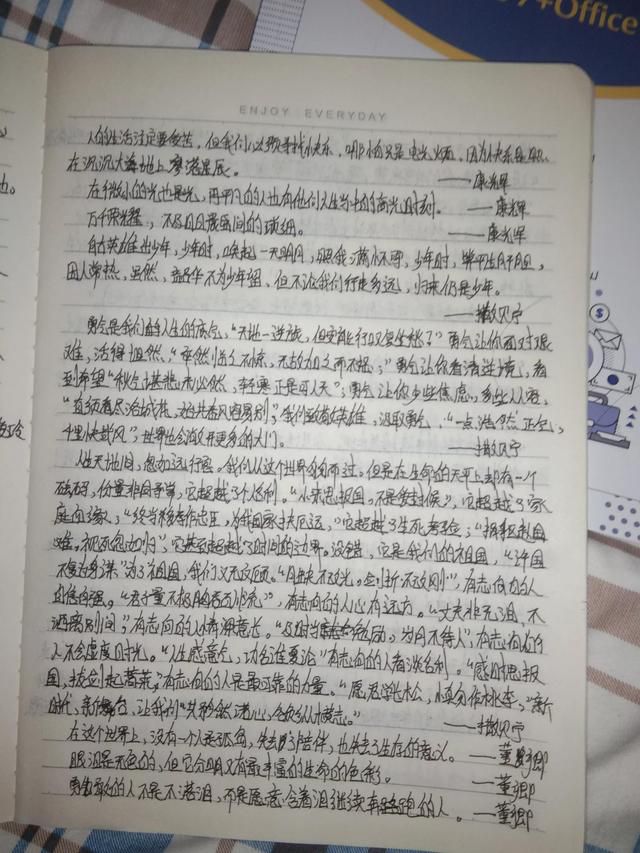 y+Office
ENJOY EVERYDAY
人的生活注定要受苦,但我们必须寻找快乐,哪怕只是电光火石,因为快乐是
在沉沉大地上 寥落星辰。 ——康辉
在微小的光也是光,再平凡的人也有他们人生当中的高光时刻。 ——康辉
万千荣耀,不及日日夜夜间的琐细。 ——康辉
自古英雄出少年,少年时,唤起一天明月,照我满怀冰雪,少年时,
虽然,韶华不为少年留,但不论我们行走多远,归来仍是少年。
——撒贝宁
勇气是我们的人生的底气,“天地一逆旅,但 ”勇气让你面对艰
难,活得坦然,“卒然临之不惊,无故加之而不怒;”勇气让你看清逆境,看
到希望“秋气堪悲未必然,轻寒正是可人天”;勇气让你少些焦虑,多些从容,
“直须看尽洛城花,始共春风容易别”;我们致敬英雄,汲取勇气,“一点浩然正气,
千里快哉风”;世界也会敞开更多的大门。 ——撒贝宁
人生天地间,忽如远行客。我们从这个世界匆匆而过,但是在生命的天平上却有一个
砝码,份量非同寻常,它超越了个人名利。“小来思报国,不是爱封侯”,它超越了家
庭因缘;“ ,为我国家扶厄运,”它超越了生死考验;“捐躯赴国
难,视死忽如归”,它甚至超越了时间的边界。没错,它是我们的祖国,“许国
不复为身谋”为了祖国,我们义无反顾。“月缺不改光,剑折不改刚”,有志向的人
自信自强。“君子量不极,胸吞百川流”,有志向的人心有远方。“丈夫非无泪,不
洒离别间”,有志向的人情深意长。“及时当勉励,岁月不待人”,有志向的
人不会虚度时光。“人生感意气,功名谁复论”有志向的人看淡名利。“感时思报
国,拔剑起蒿莱”,有志向的人是最可靠的力量。“愿君学长松,慎勿作桃李,”新
时代,新舞台,让我们“ ” ——撒贝宁
在这个世界上,没有一个人是孤岛,失去了陪伴,也失去了生存的意义。 ——董卿
眼泪是无色的,但它分明又有最丰富的生命的色彩。 ——董卿
勇敢的人不是不落泪,而是愿意含着泪继续奔跑的人。 ——董卿